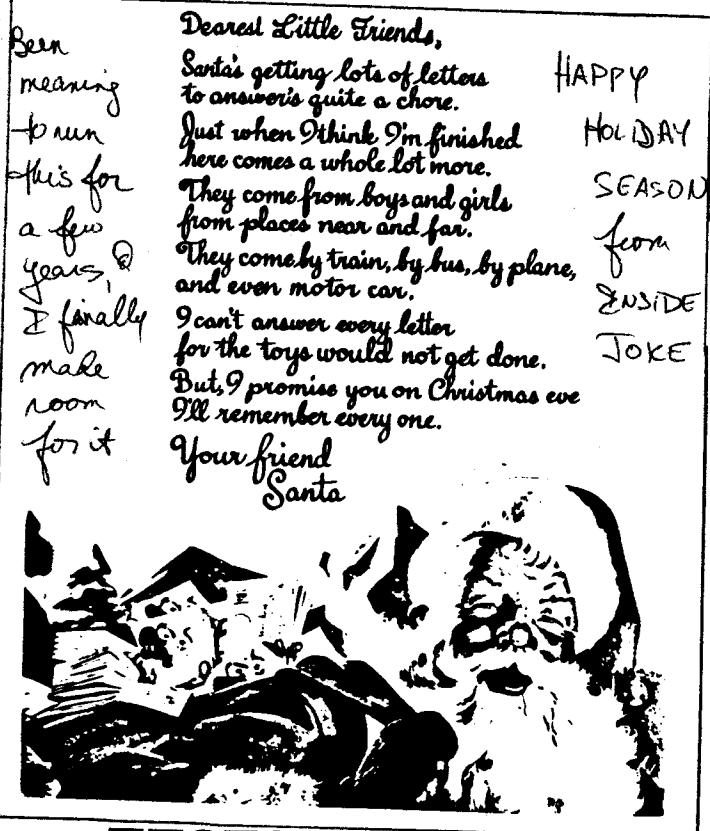 Been
meaning
to run
this for
a few
years,
I finally
make
room
for it
Dearest Little Friends,
Santa's getting lots of letters
to answer's quite a chore.
Just when I think I'm finished
here comes a whole lot more.
They come from boys and girls
from places near and far.
They come by train, by bus, by plane,
and even motor car.
I can't answer every letter
for the toys would not get done.
But, I promise you on Christmas eve
I'll remember every one.
Your friend
Santa
HAPPY
HOLIDAY
SEASON
from
INSIDE
JOKE